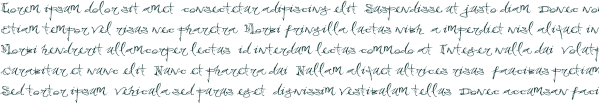 Lorem ipsum dolor sit amet consectetur adipiscing elit Suspendisse at justo diam Donec no
etiam tempor vel risus nec pharetra Morbi fringilla luctus nibh a imperdiet nisl aliquet in
Morbi hendrerit ullamcorper lectus id interdum lectus commodo at Integer nulla dui volutp
curabitur et nunc elit Nunc et pharetra dui Nullam aliquet ultrices risus faucibus pretium
Sed tortor ipsum vehicula sed purus eget dignissim vestibulum tellus Donec accumsan fauci